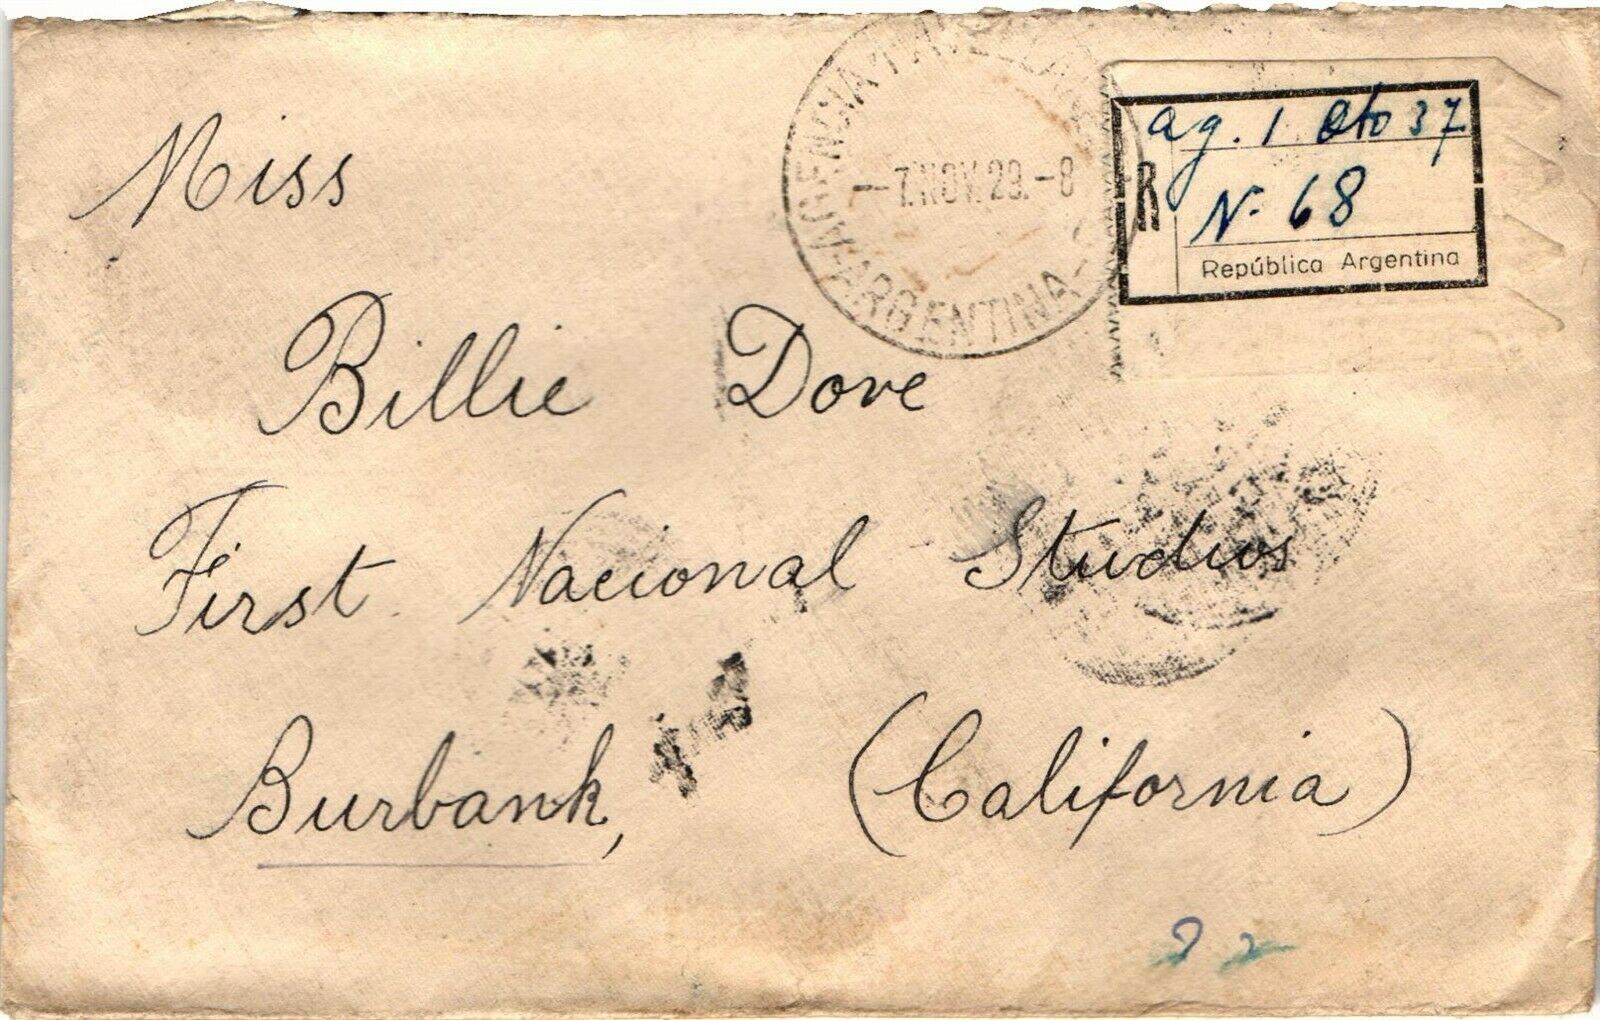 AGENCIA 1
-7.NOV.29.-8
ARGENTINA
R
ag. 1 Dto 37
N- 68
República Argentina
Miss
Billie Dove
First Nacional Studios
Burbank,
(California)
22